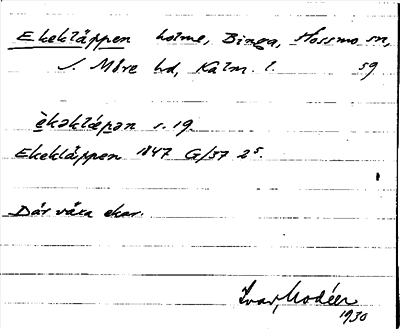 Ekekläppen holme, Binga, Hossmo sn,
S. Möre hd, Kalm. l. 59
èkəklǽpən s. 19.
Ekekläppen 1847 G/37 25.
Där växa ekar.
Ivar Modéer
1930